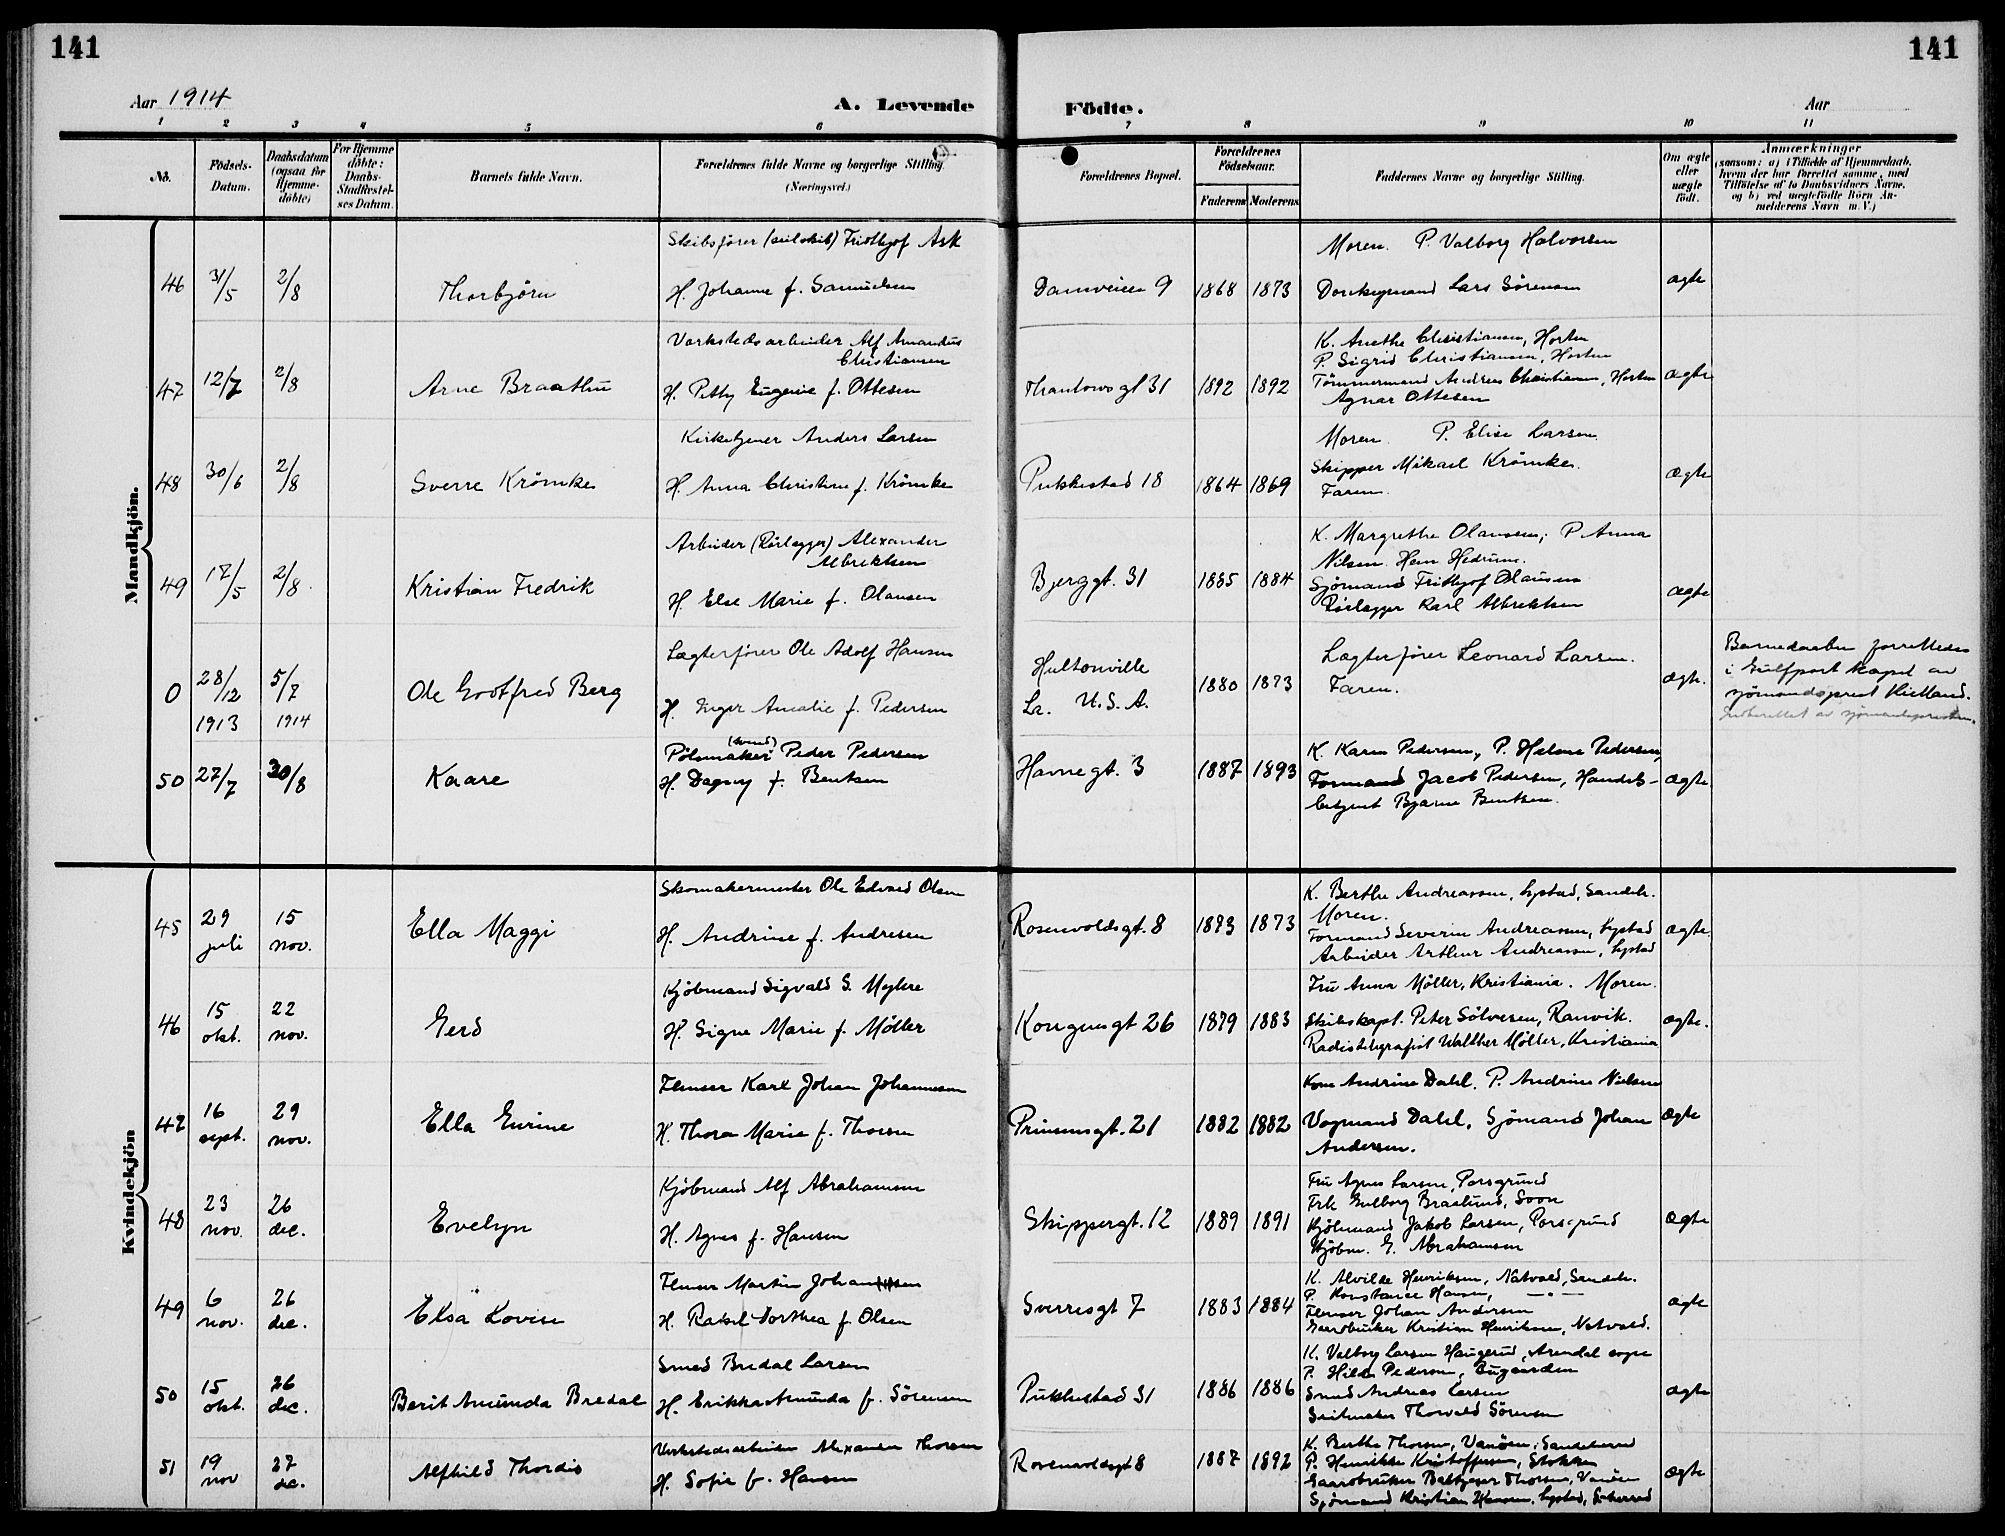 141
141
Aar 1914
A. Levende
Födte.
Aar
1 2 3 4 5 6 7 8 9 10 11
No.
Födsels-Datum.
Daabsdatum (ogsaa for Hjemme-döbte)
For Hjemme döbte: Daabs-Stadfæstelses Datum.
Barnets fulde Navn.
Forældrenes fulde Navne og borgerlige Stilling. (Næringsvei.)
Forældrenes Bopæl.
Forældrenes Födselsaar.
Faderens Moderens
Faddernes Navne og borgerlige Stilling.
Om ægte eller uægte födt.
Anmærkninger
(saasom: a) i Tilfælde af Hjemmedaab,
hvem der har forrettet samme, med
Tilföielse af to Daabsvidners Navne,
og b) ved uægtefödte Börn An-
melderens Navn m. V.)
Mandkjön.
Skibsfører (seilskib) Fridtjof Ask
46 31/5 2/8 Thorbjørn H. Johanne f. Samuelsen Damveien 9 1868 1873
Moren. P. Valborg Halvorsen
Donkeymand Lars Sørensen
ægte
Verkstedsarbeider Alf Amandus
Christiansen
47 12/7 2/8 Arne Braathu H. Petty Eugenie f. Ottesen Thaulowsgt 31 1892 1892
K. Anethe Christiansen, Horten
P. Sigrid Christiansen, Horten
Tømmermand Andreas Christiansen, Horten
Agnar Ottesen
ægte
Kirketjener Anders Larsen
48 30/6 2/8 Sverre Krömke H. Anna Christine f. Krömke Pukkestad 18 1864 1869
Moren. P. Elise Larsen.
Skipper Mikael Krömke.
Faren.
ægte
Arbeider (Rørlegger) Alexander
Albrektsen
49 17/5 2/8 Kristian Fredrik H. Else Marie f. Olausen Bjerggt. 31 1885 1884
K. Margrethe Olausen; P. Anna
Nilsen. Hem Hedrum.
Sjömand Fridtjof Olausen
Rørlegger Karl Albrektsen
ægte
Lægterfører Ole Adolf Hansen
0 28/12 1913 5/7 1914 Ole Godtfred Berg H. Inger Amalie f. Pedersen
Hultonville
La. U.S.A.
1880 1873
Lægterfører Leonard Larsen.
Faren.
ægte.
Barnedaaben forrettedes
i Gulfport kapel av
sjömandsprest Kielland.
Indberettet av sjömandspresten.
(svend)
Pölsmaker Peder Pedersen
50 27/7 30/8 Kaare H. Dagny f. Bentsen Havnegt. 3 1887 1893
K. Karen Pedersen, P. Helene Pedersen,
Formand Jacob Pedersen, Handels-
betjent Bjarne Bentsen.
ægte.
Kvindekjön
Skomakermester Ole Edvard Olsen
45 29 juli 15 nov. Ella Maggi H. Andrine f. Andresen Rosenvoldsgt. 8 1873 1873
K. Berthe Andreassen, Lystad, Sandeh.
Moren.
Formand Severin Andreassen, Lystad
Arbeider Arthur Andreassen, Lystad
ægte.
Kjöbmand Sigvald S. Myhre
46 15 okt. 22 nov. Gerd H. Signe Marie f. Möller Kongensgt 26 1879 1883
Fru Anna Möller, Kristiania. Moren.
Skibskapt. Peter Sölvesen, Ranvik.
Radiotelegrafist Walther Möller, Kristiania
ægte.
Flenser Karl Johan Johannesen
47 16 sept. 29 nov. Ella Eurine H. Thora Marie f. Thorsen Prinsensgt. 21 1882 1882
Kone Andrine Dahl. P. Andrine Nielsen
Vognmand Dahl, Sjömand Johan
Andersen.
ægte
Kjöbmand Alf Abrahamsen
48 23 nov. 26 dec. Evelyn H. Agnes f. Hansen Skippergt. 12 1889 1891
Fru Agnes Larsen, Porsgrund
Frk Gulborg Braalund, Soon
Kjöbmand Jakob Larsen, Porsgrund
Kjöbm. G. Abrahamsen
ægte
Flenser Martin Johansen
49 6 nov. 26 dec. Elsa Lovise H. Rakel Dorthea f. Olsen Sverresgt 7 1883 1884
K. Alvilde Henriksen, Natvald, Sandeh.
P. Konstance Hansen, — " —
Flenser Johan Andersen
Gaardbruker Kristian Henriksen, Natvald.
ægte
Smed Bredal Larsen
50 15 okt. 26 dec. Berit Amunda Bredal H. Erikka Amunda f. Sörensen Pukkestad 31 1886 1886
K. Valborg Larsen Haugerud, Arendal sogn
P. Hilda Pedersen, Bugaarden
Smed Andreas Larsen
Seilmaker Thorvald Sörensen
ægte
Verkstedsarbeider Alexander Thorsen
51 19 nov 27 dec. Alfhild Thordis H. Sofie f. Hansen Rosenvoldsgt 8 1887 1892
K. Berthe Thorsen, Vanöen, Sandeherred
P. Henrikke Kristoffersen, Stokke
Gaardbruker Baltzer Thorsen, Vanöen
Sjömand Kristian Hansen, Lystad, S.herred
ægte